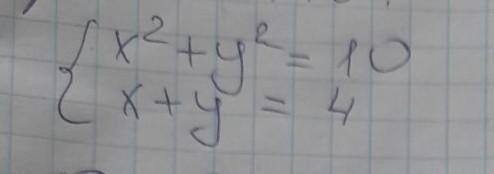 x² + y² = 10
x + y = 4